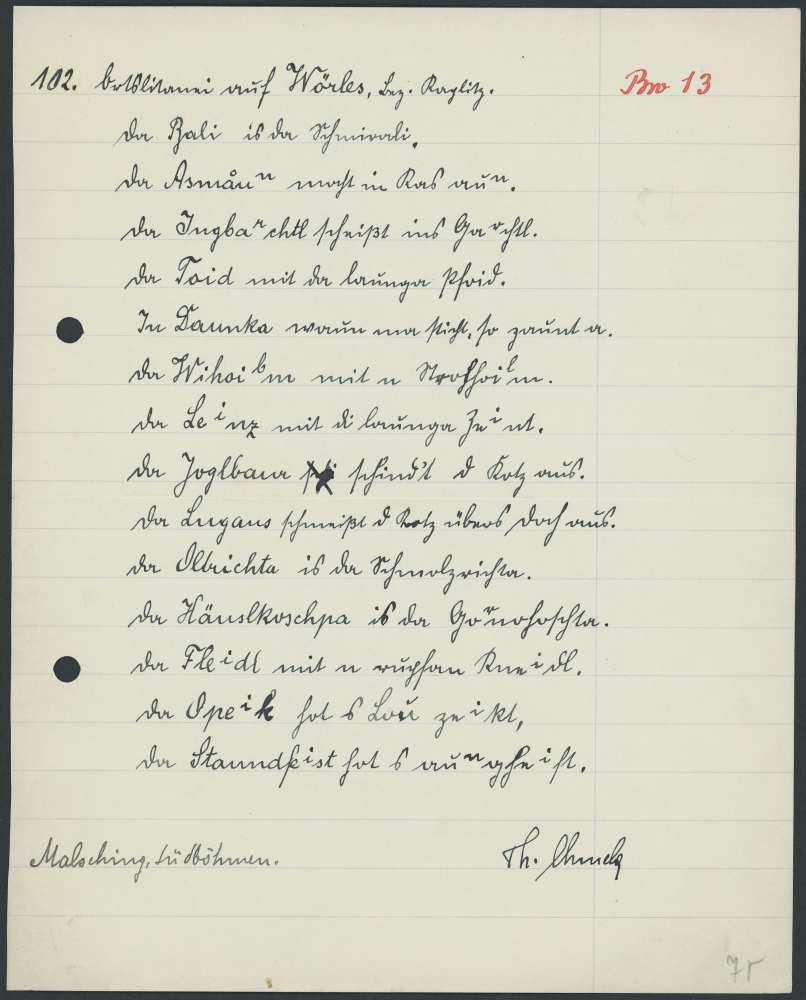 102. Ortslitanei auf Wörles, Bez. Kaplitz. Bw 13
da Bali is da Schmirali.
da Asmåuⁿ mocht in Kas auⁿ.
da Ingbaʳchtl scheißt ins Gaʳchtl.
da Toid mit da launga Pfoid.
In Daunka waun ma sticht, so zaunt a.
da Wihoiᵇm mit n Strohhoiˡm.
da Leⁱnz mit di launga Zeⁱnt.
da Joglbaua schind't d Kotz aus.
da Lugaus schmeißt d Kotz übers Doch aus.
da Olbrichta is da Schmolzrichta.
da Häuslkoschpa is da Goʳnhoschta.
da Fleidl mit n rupfan Kneⁱdl.
da Opeⁱk hot s Lou zeⁱkt,
da Staundfeist hot s auⁿgheⁱft.
Malsching, Südböhmen. Th. Chmela
75